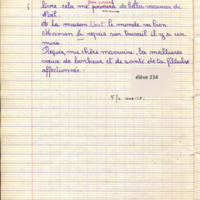 livre cela me promera de belles vacances de
Noël.
A la maison tout le monde va bien
Maman a requis son travail il y a un
mois.
Reçois ma chère marraine, les meilleurs
vœux de bonheur et de santé de ta filleule
affectionnée.
élève 234